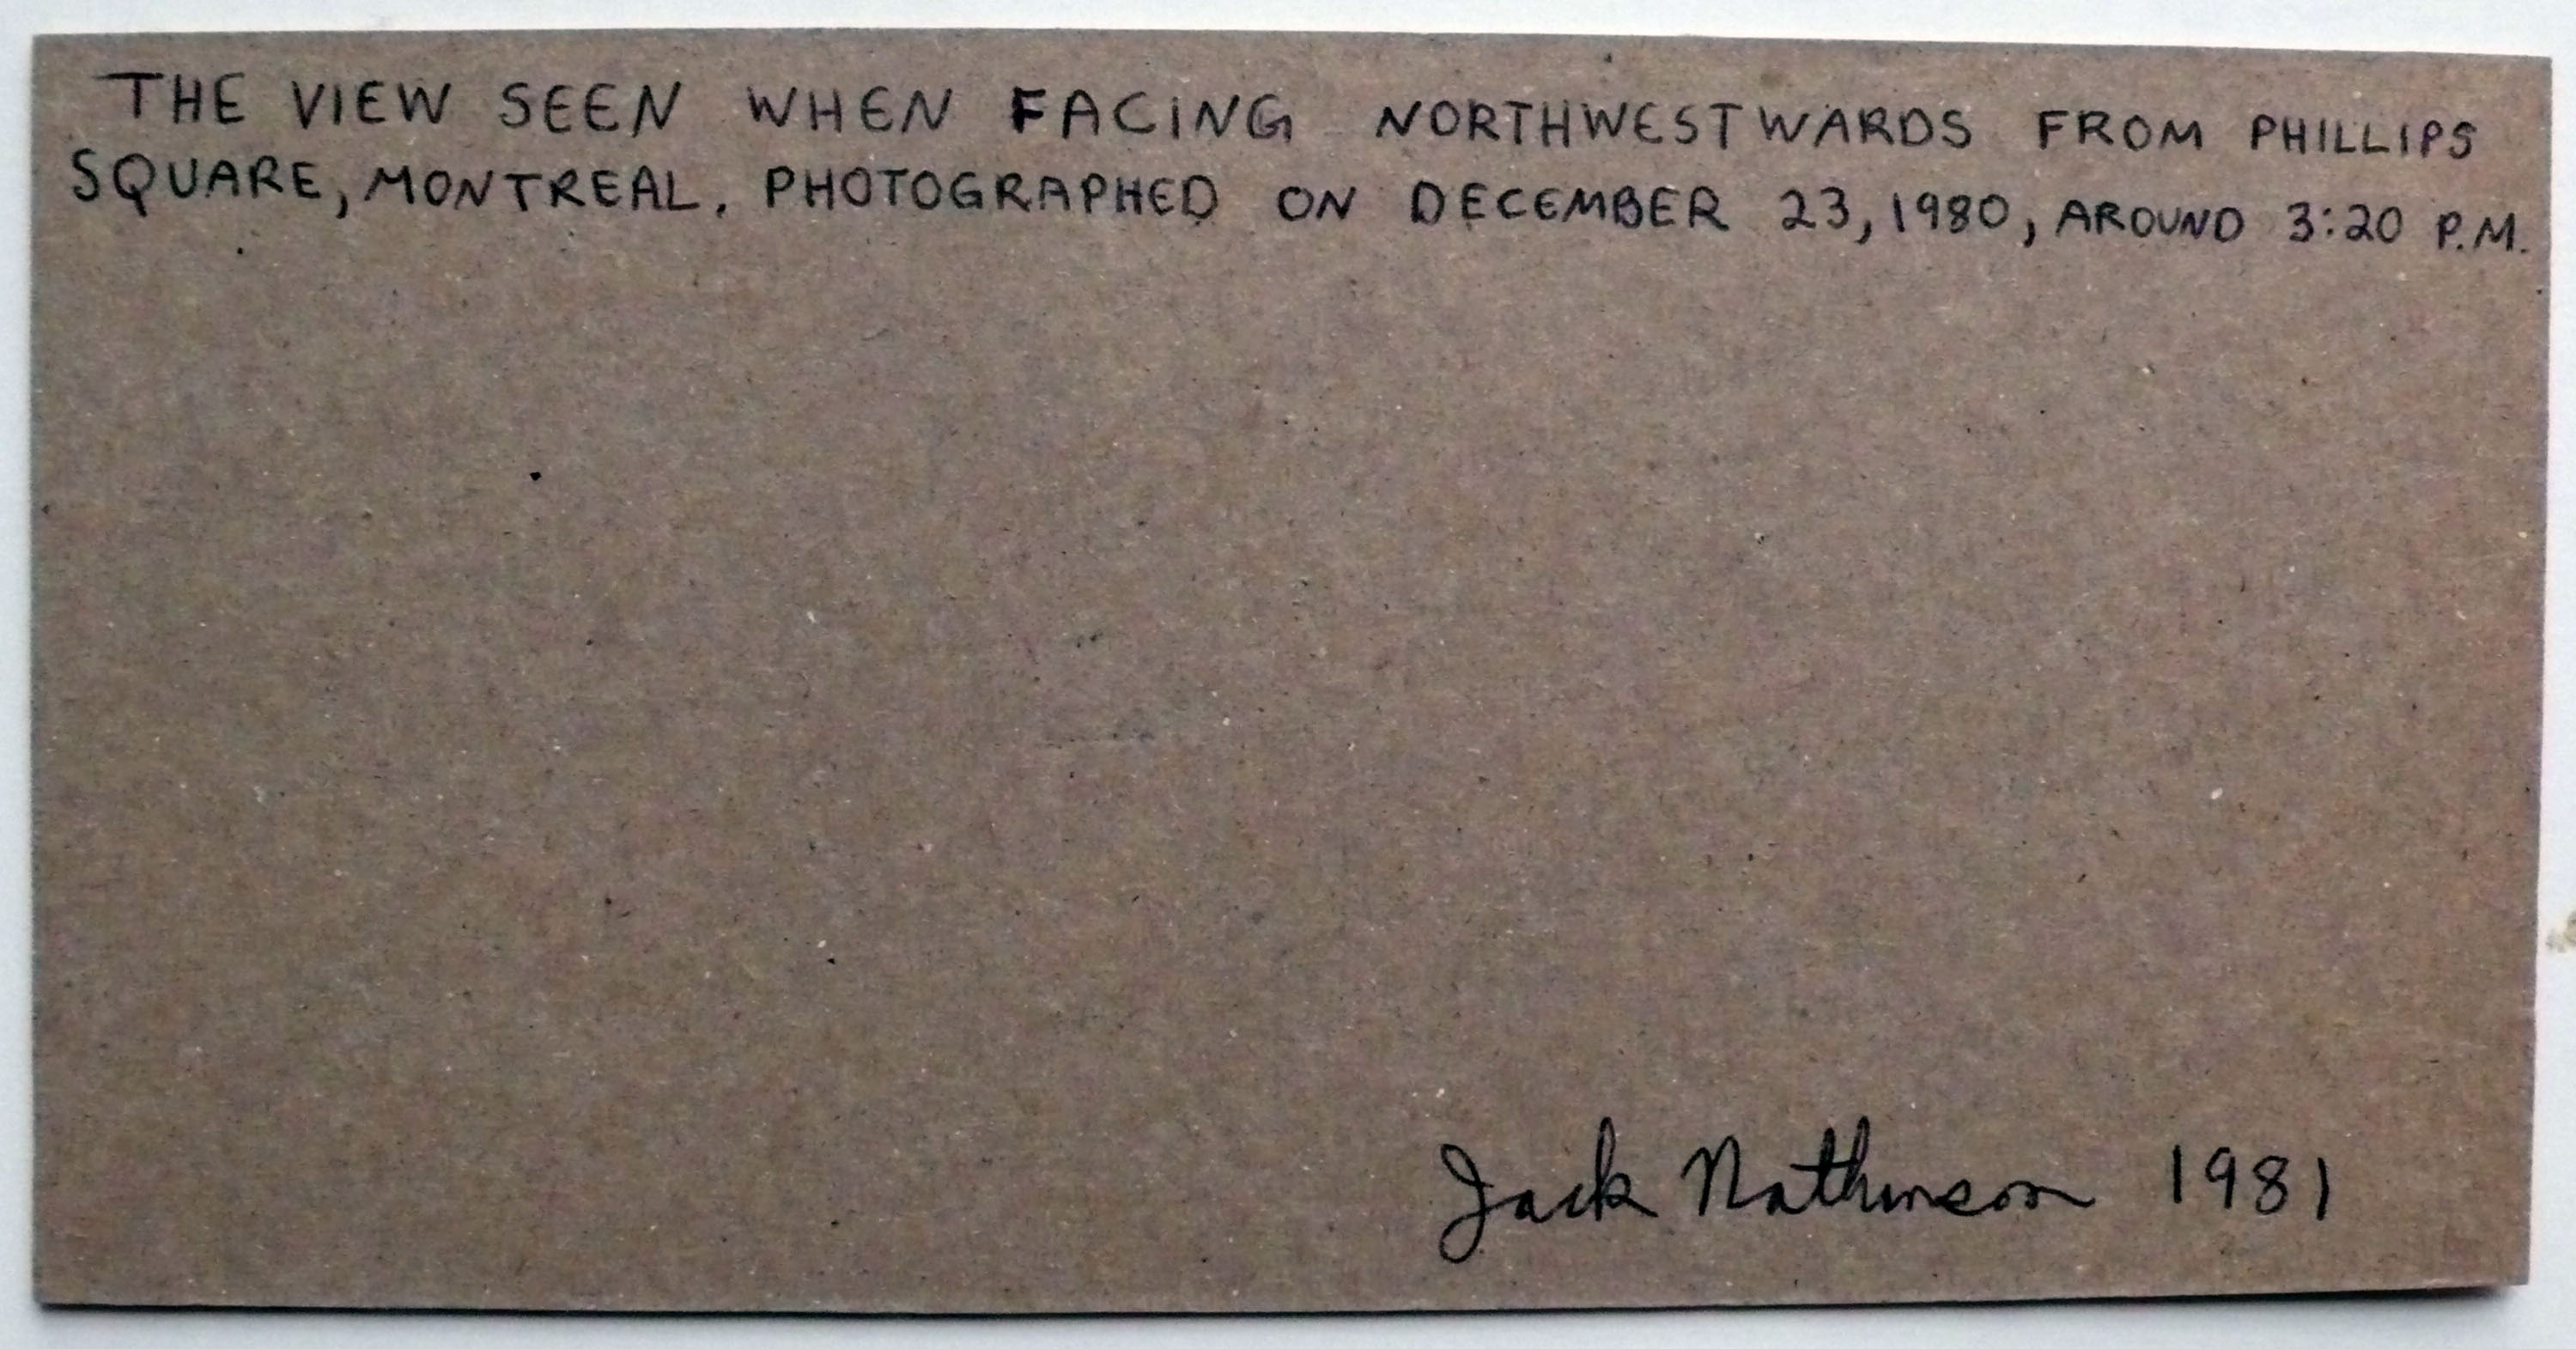 THE VIEW SEEN WHEN FACING NORTHWESTWARDS FROM PHILLIPS
SQUARE, MONTREAL. PHOTOGRAPHED ON DECEMBER 23, 1980, AROUND 3:20 P.M.
Jack Nathinson 1981